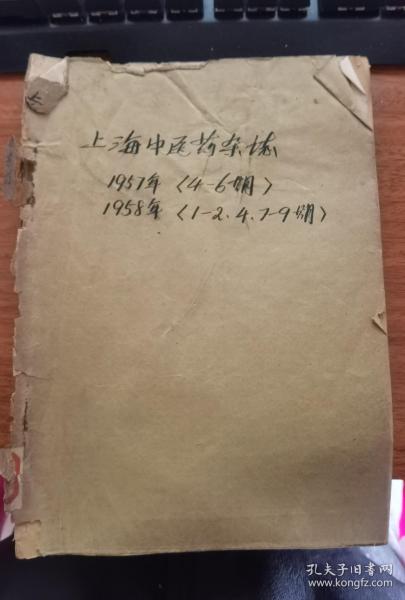 上海中医药杂志
1957年〈4-6期〉
1958年〈1-2.4.7-9期〉
孔夫子旧书网
www.kongfz.com